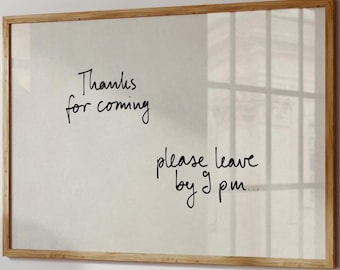 Thanks
for coming
please leave
by 9 pm...